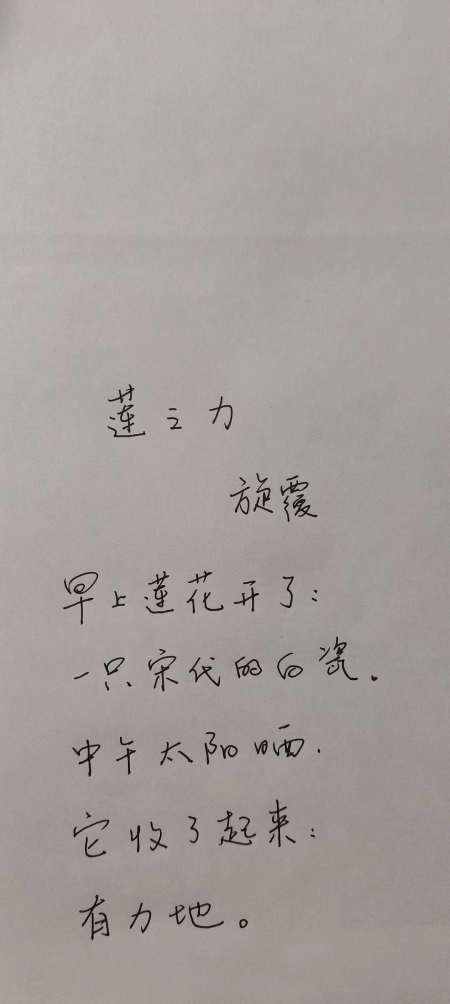 莲之力
旋覆
早上莲花开了：
一只宋代的白瓷。
中午太阳晒.
它收了起来：
有力地。